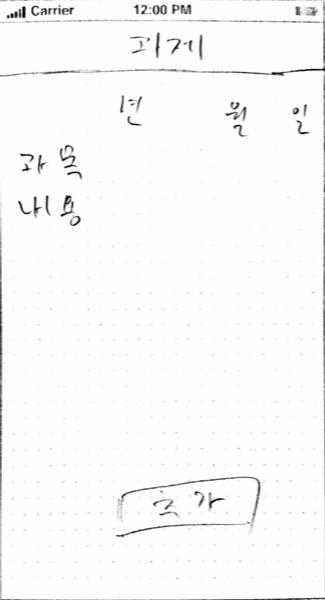 Carrier 12:00 PM
과제
년 월 일
과목
내용
추가